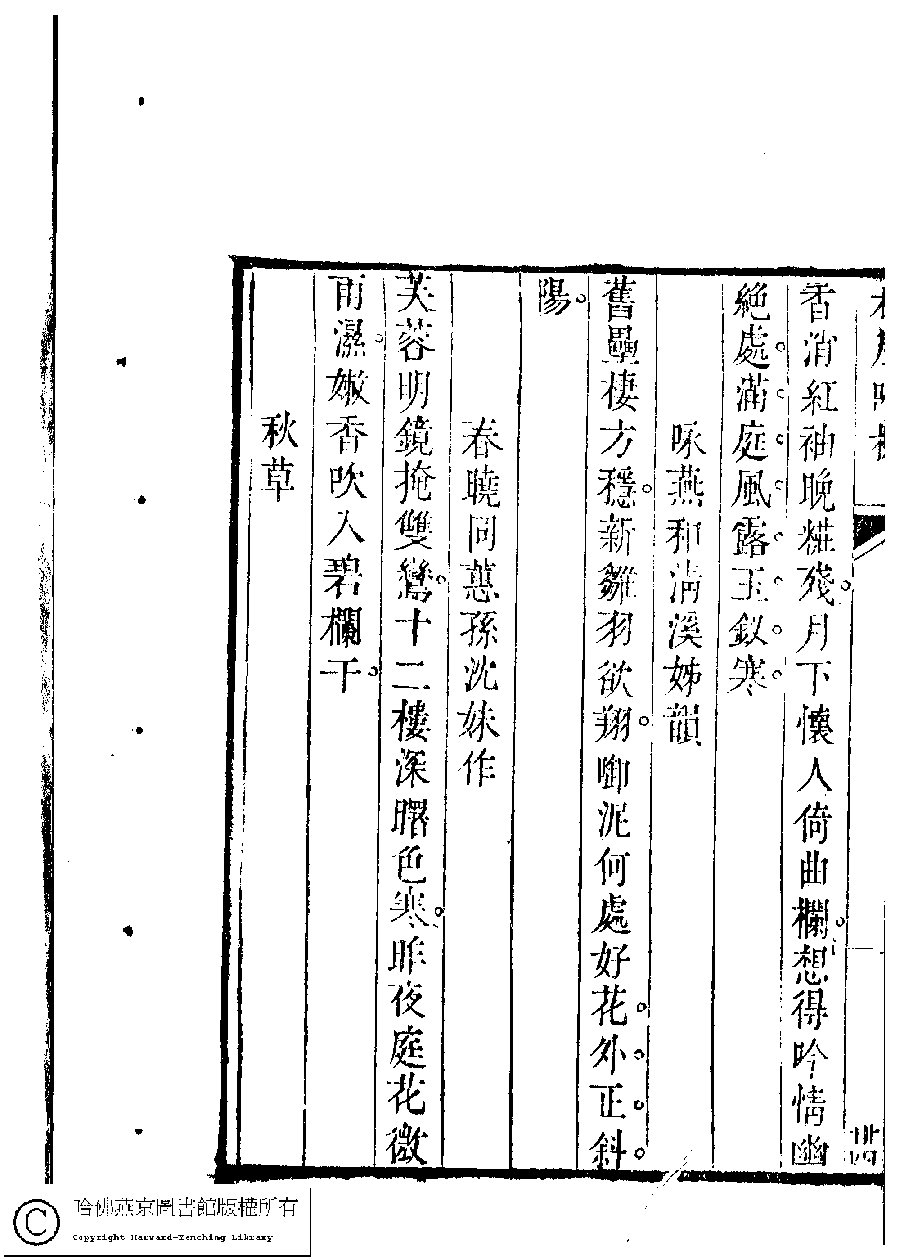 香消紅袖晚糚殘。月下懷人倚曲欄。想得吟情幽
絕處。滿。庭。風。露。玉。釵。寒。
咏燕和清溪姊韻
舊壘棲方穩。新雛羽欲翔。啣泥何處好花。外。正。斜。
陽。
春曉同蕙孫沈妹作
芙蓉明鏡掩雙鸞。十二樓深曙色寒。昨夜庭花微
雨濕。嫩香吹入碧欄干。
秋草
哈佛燕京圖書館版權所有
Copyright Harvard-Yenching Library